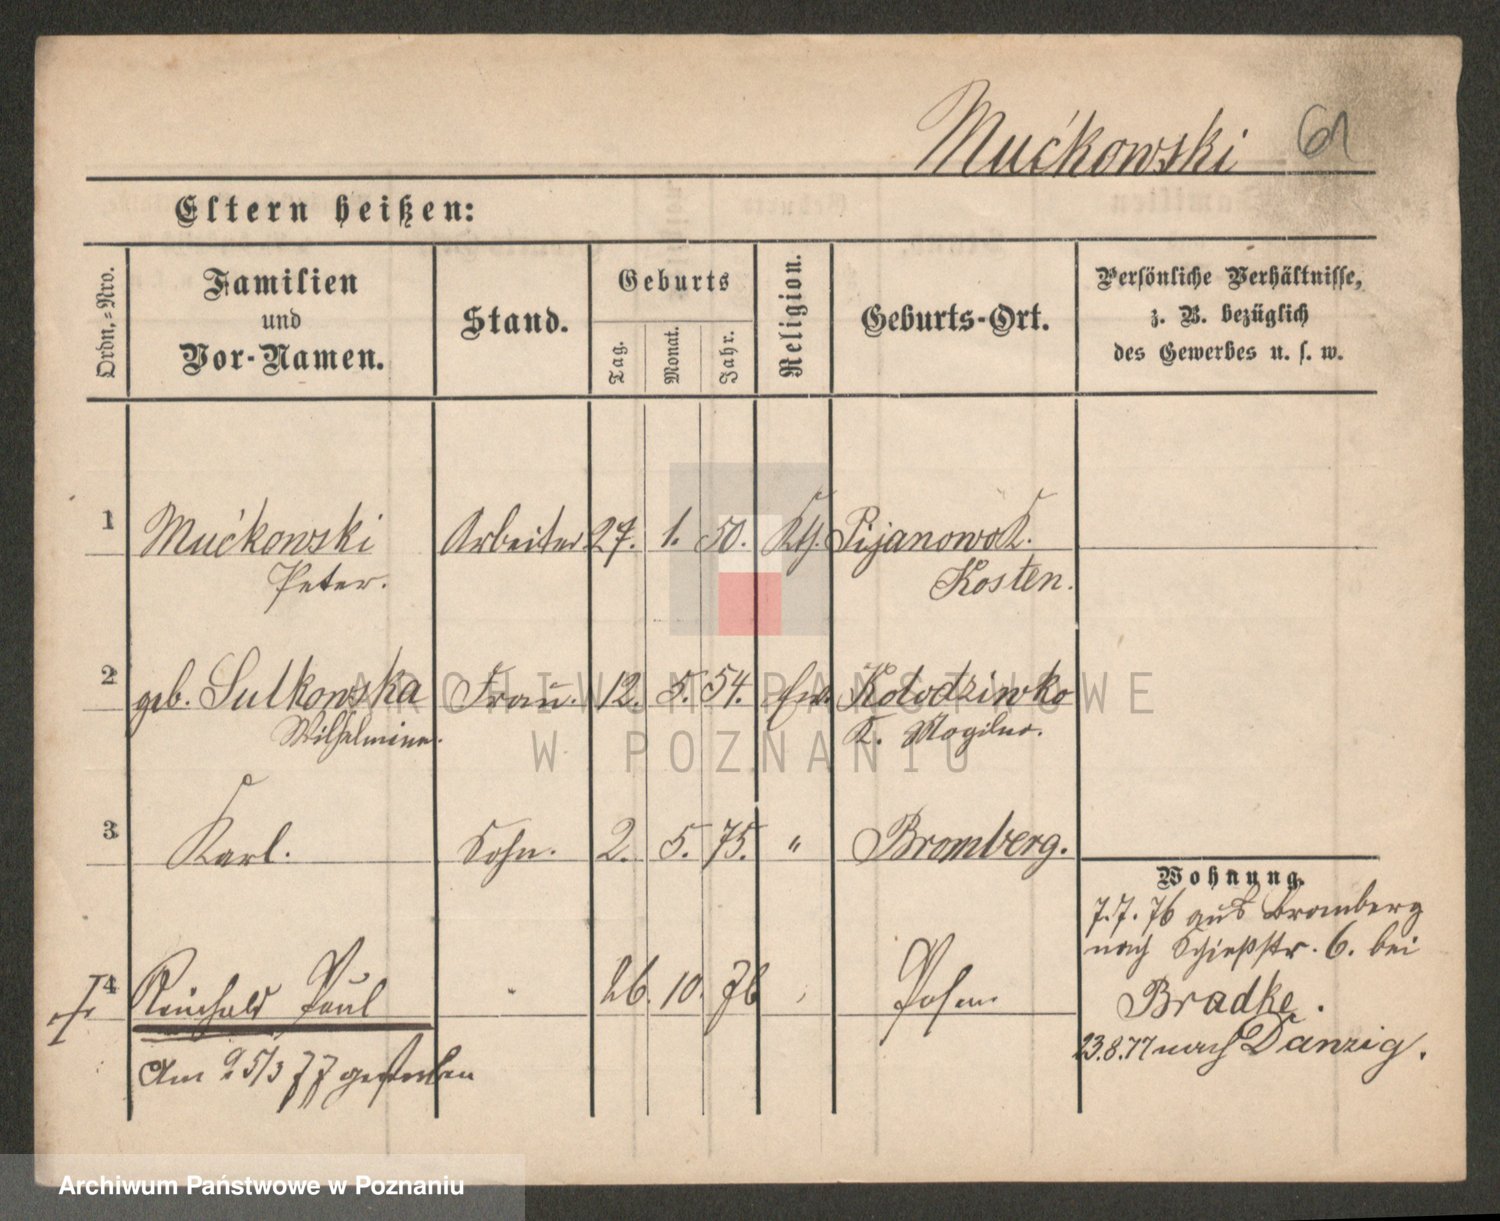 Mućkowski 61
Eltern heißen:
Ordn.=Nro.
Familien
und
Vor-Namen.
Stand.
Geburts
Tag.
Monat.
Jahr.
Religion.
Geburts-Ort.
Persönliche Verhältnisse,
z. B. bezüglich
des Gewerbes u. s. w.
1 Mućkowski Arbeiter 27. 1. 50. Kth. Pijanowo K.
Peter. Kosten.
2 geb. Sulkowska Frau. 12. 5. 54. Ew. Kolodziwko
Wilhelmine. K. Mogilno.
3 Karl. Sohn. 2. 5. 75. " Bromberg.
4 Reinhold Paul 26. 10. 76 Posen
Am 25/3 77 gestorben
Wohnung.
7.7.76 aus Bromberg
nach Schießstr. 6. bei
Bradke.
23.8.77 nach Danzig.
ARCHIWUM PAŃSTWOWE
W POZNANIU
Archiwum Państwowe w Poznaniu